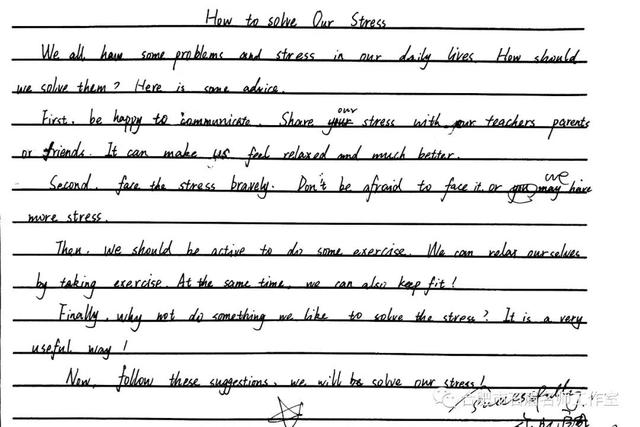 How to solve Our Stress
We all have some problems and stress in our daily lives. How should
we solve them? Here is some advice.
First, be happy to communicate. Share our stress with our teachers parents
or friends. It can make us feel relaxed and much better.
Second, face the stress bravely. Don't be afraid to face it, or we may have
more stress.
Then, we should be active to do some exercise. We can relax ourselves
by taking exercise. At the same time, we can also keep fit!
Finally, why not do something we like to solve the stress? It is a very
useful way!
Now, follow these suggestions, we will be solve our stress!
successfully